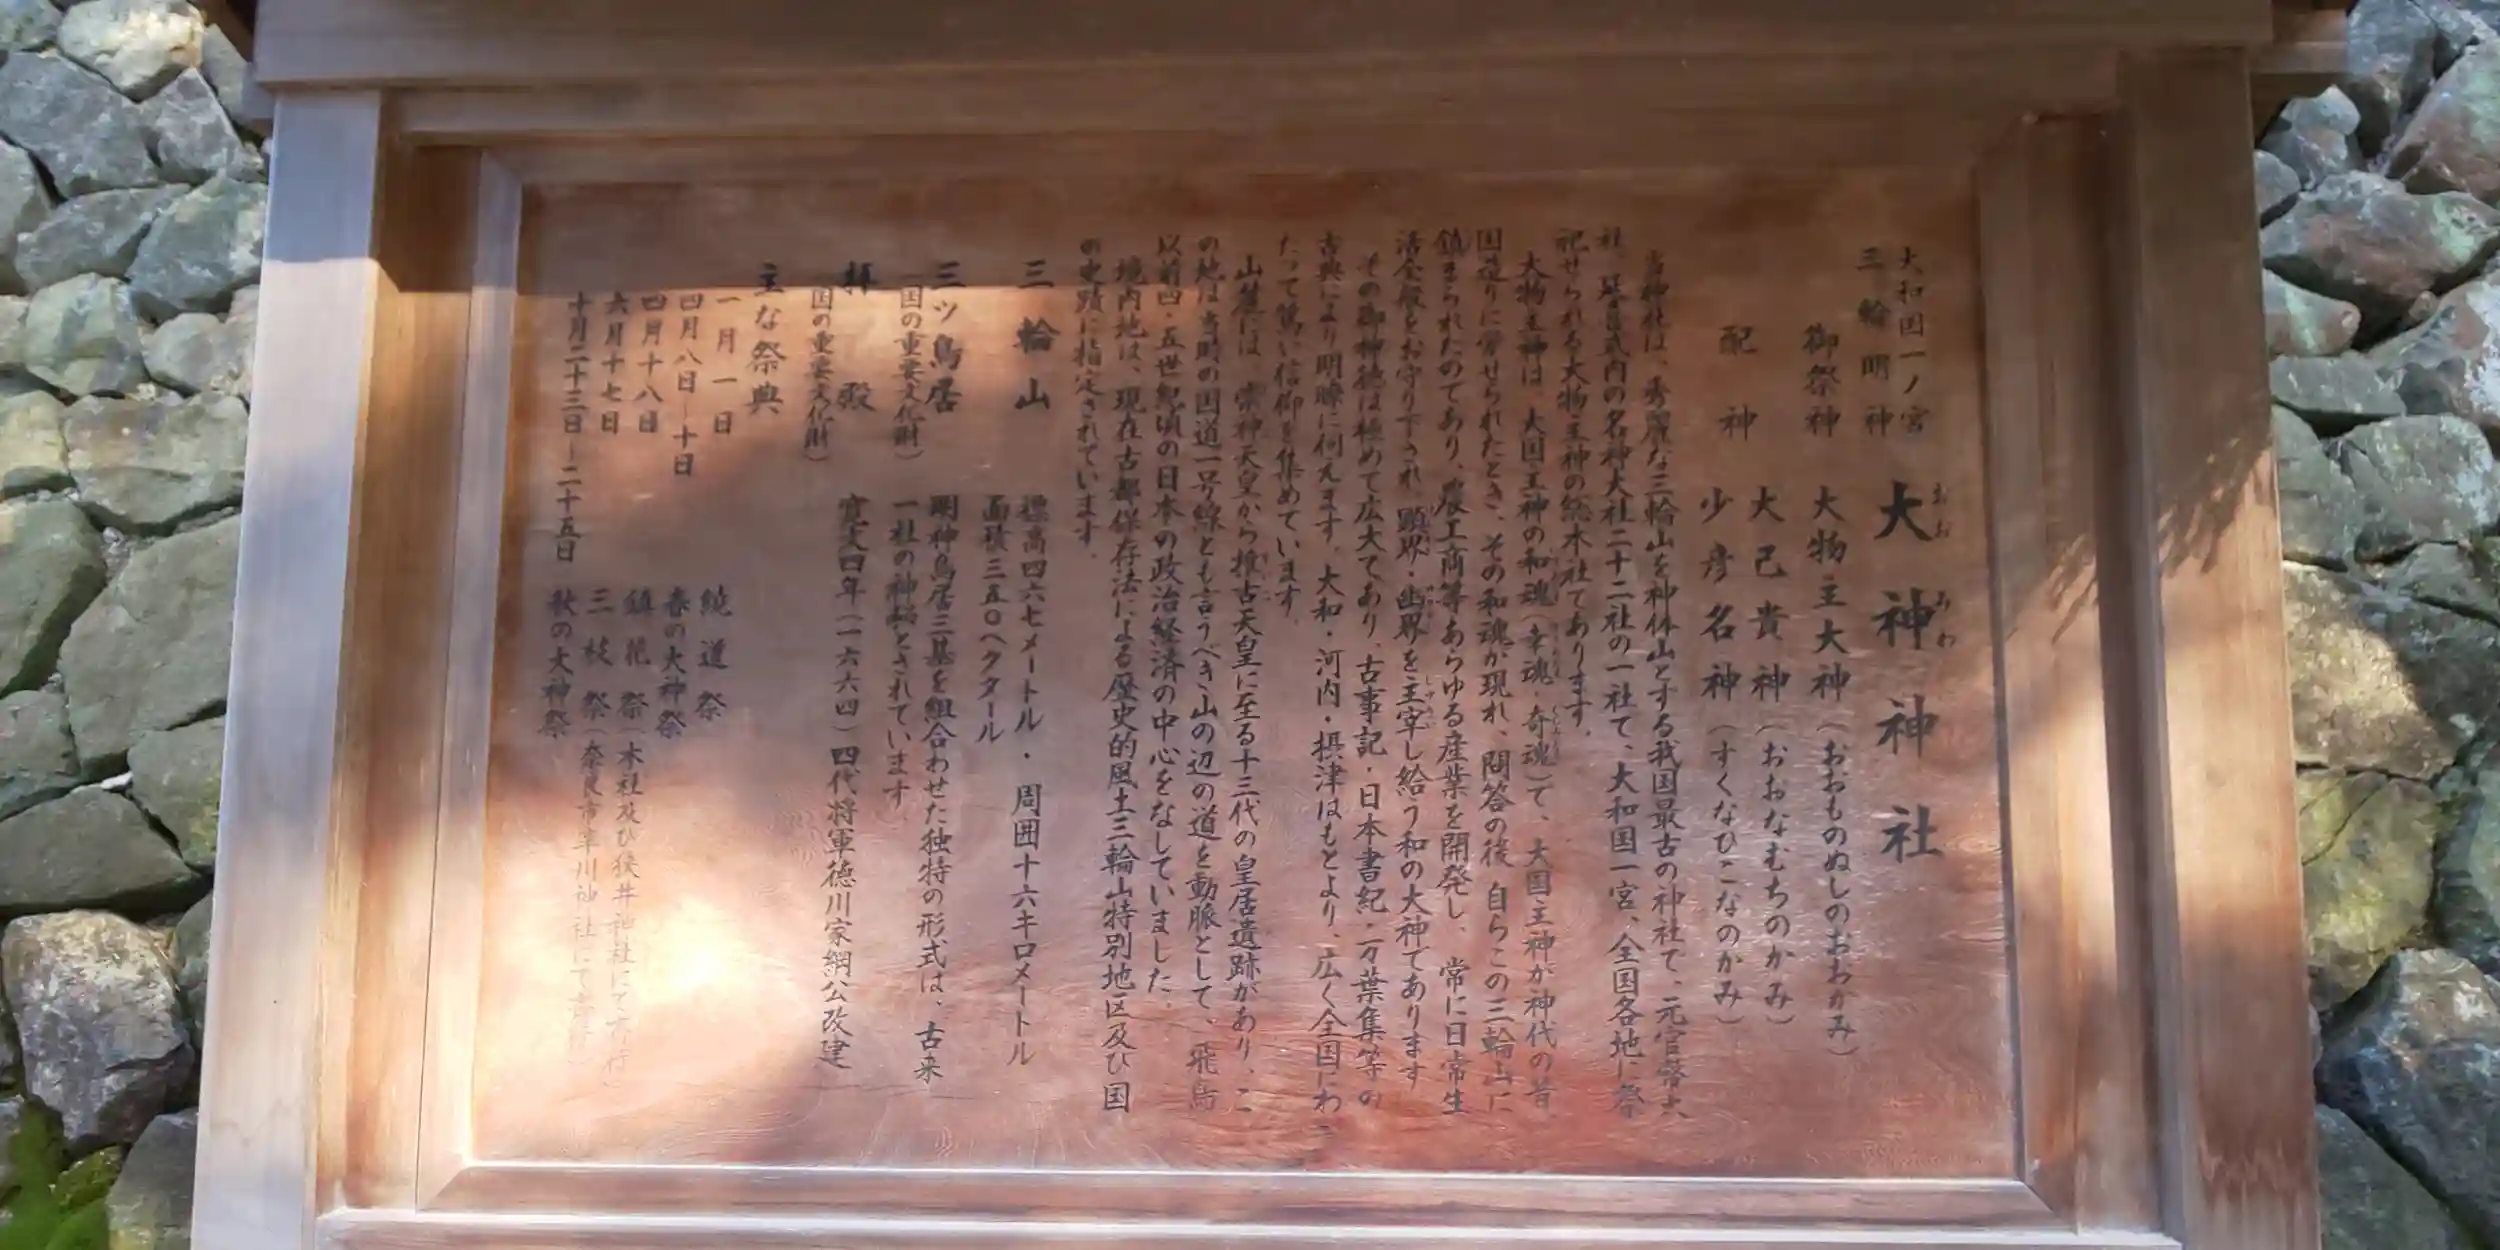 大和国一ノ宮
三輪明神
大神神社
おお みわ
御祭神 大物主大神（おおものぬしのおおかみ）
配神 大己貴神（おおなむちのかみ）
少彦名神（すくなひこなのかみ）
当神社は、秀麗な三輪山を神体山とする我国最古の神社で、元官幣大
社、延喜式内の名神大社二十二社の一社で、大和国一宮、全国各地に祭
祀せられる大物主神の総本社であります。
大物主神は、大国主神の和魂（幸魂・奇魂）で、大国主神が神代の昔、
国造りに労せられたとき、その和魂が現れ、問答の後 自らこの三輪山に
鎮まられたのであり、農工商等あらゆる産業を開発し、常に日常生
活全般をお守り下され、顕界・幽界を主宰し給う和の大神であります
その御神徳は極めて広大であり、古事記・日本書紀・万葉集等の
古典により明瞭に伺えます。大和・河内・摂津はもとより、広く全国にわ
たって篤い信仰を集めています。
山麓には、崇神天皇から推古天皇に至る十三代の皇居遺跡があり、こ
の地は当時の国道一号線とも言うべき山の辺の道を動脈として、飛鳥
以前四・五世紀頃の日本の政治経済の中心をなしていました。
境内地は、現在古都保存法による歴史的風土三輪山特別地区及び国
の史蹟に指定されています。
三輪山 標高四六七メートル・周囲十六キロメートル
面積三五〇ヘクタール
三ツ鳥居 明神鳥居三基を組合わせた独特の形式は、古来
（国の重要文化財） 一社の神秘とされています
拝殿 寛文四年（一六六四）四代将軍徳川家綱公改建
（国の重要文化財）
主な祭典
一月一日 繞道祭
四月八日－十日 春の大神祭
四月十八日 鎮花祭（本社及び狭井神社にて斎行）
六月十七日 三枝祭（奈良市率川神社にて
十月二十三日－二十五日 秋の大神祭